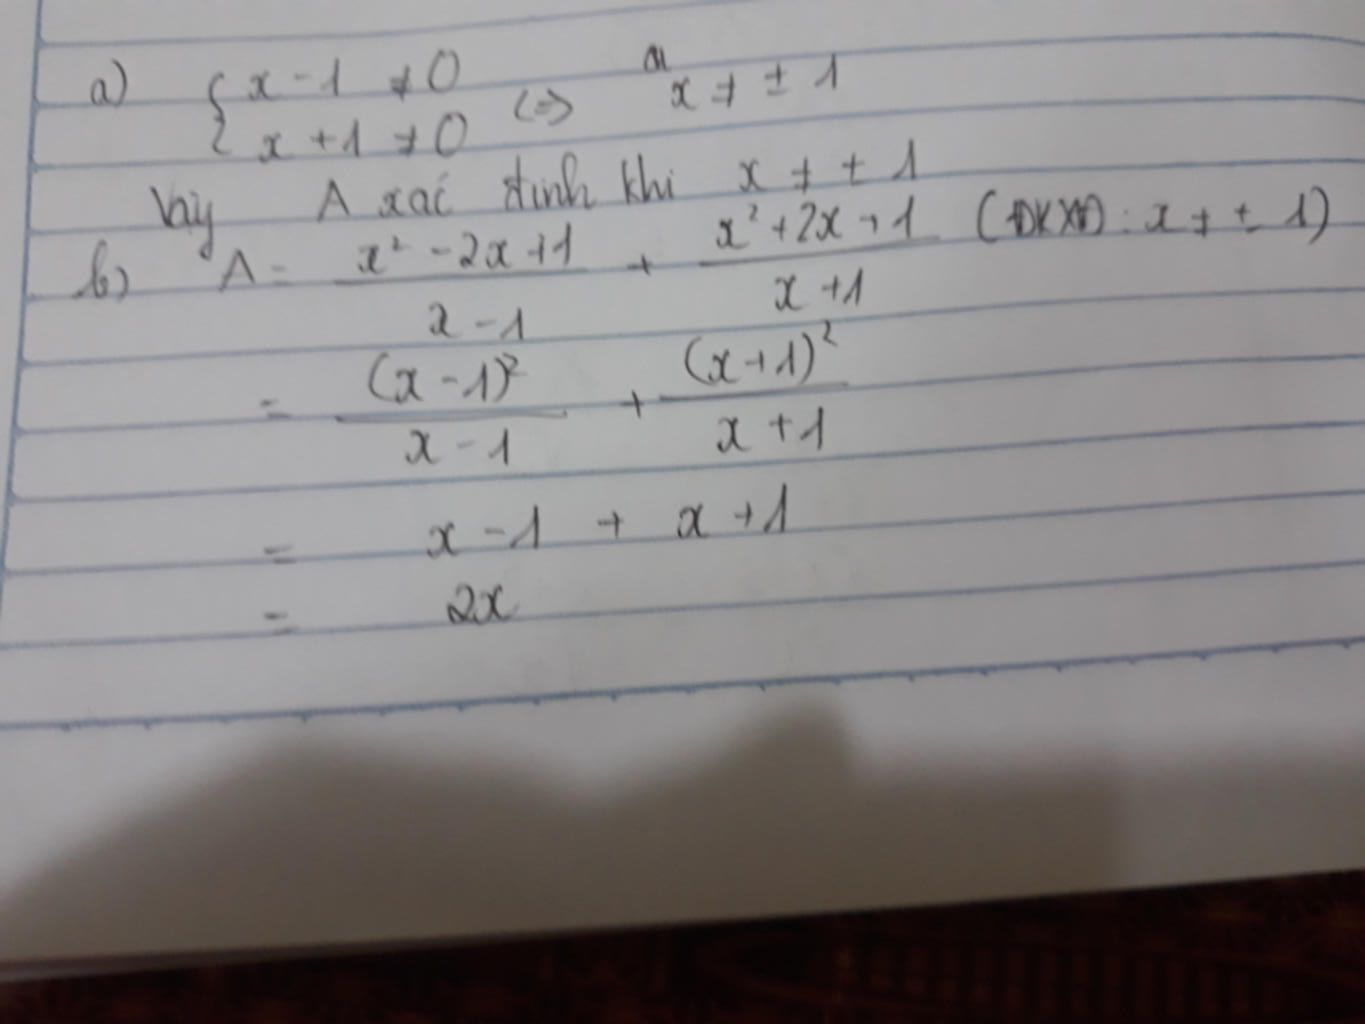 a) { x - 1 ≠ 0
x + 1 ≠ 0 <=> x ≠ ± 1
Vậy A xác định khi x ≠ ± 1
b) A = (x² - 2x + 1)/(x - 1) + (x² + 2x + 1)/(x + 1) (ĐKXĐ: x ≠ ± 1)
= (x - 1)²/(x - 1) + (x + 1)²/(x + 1)
= x - 1 + x + 1
= 2x